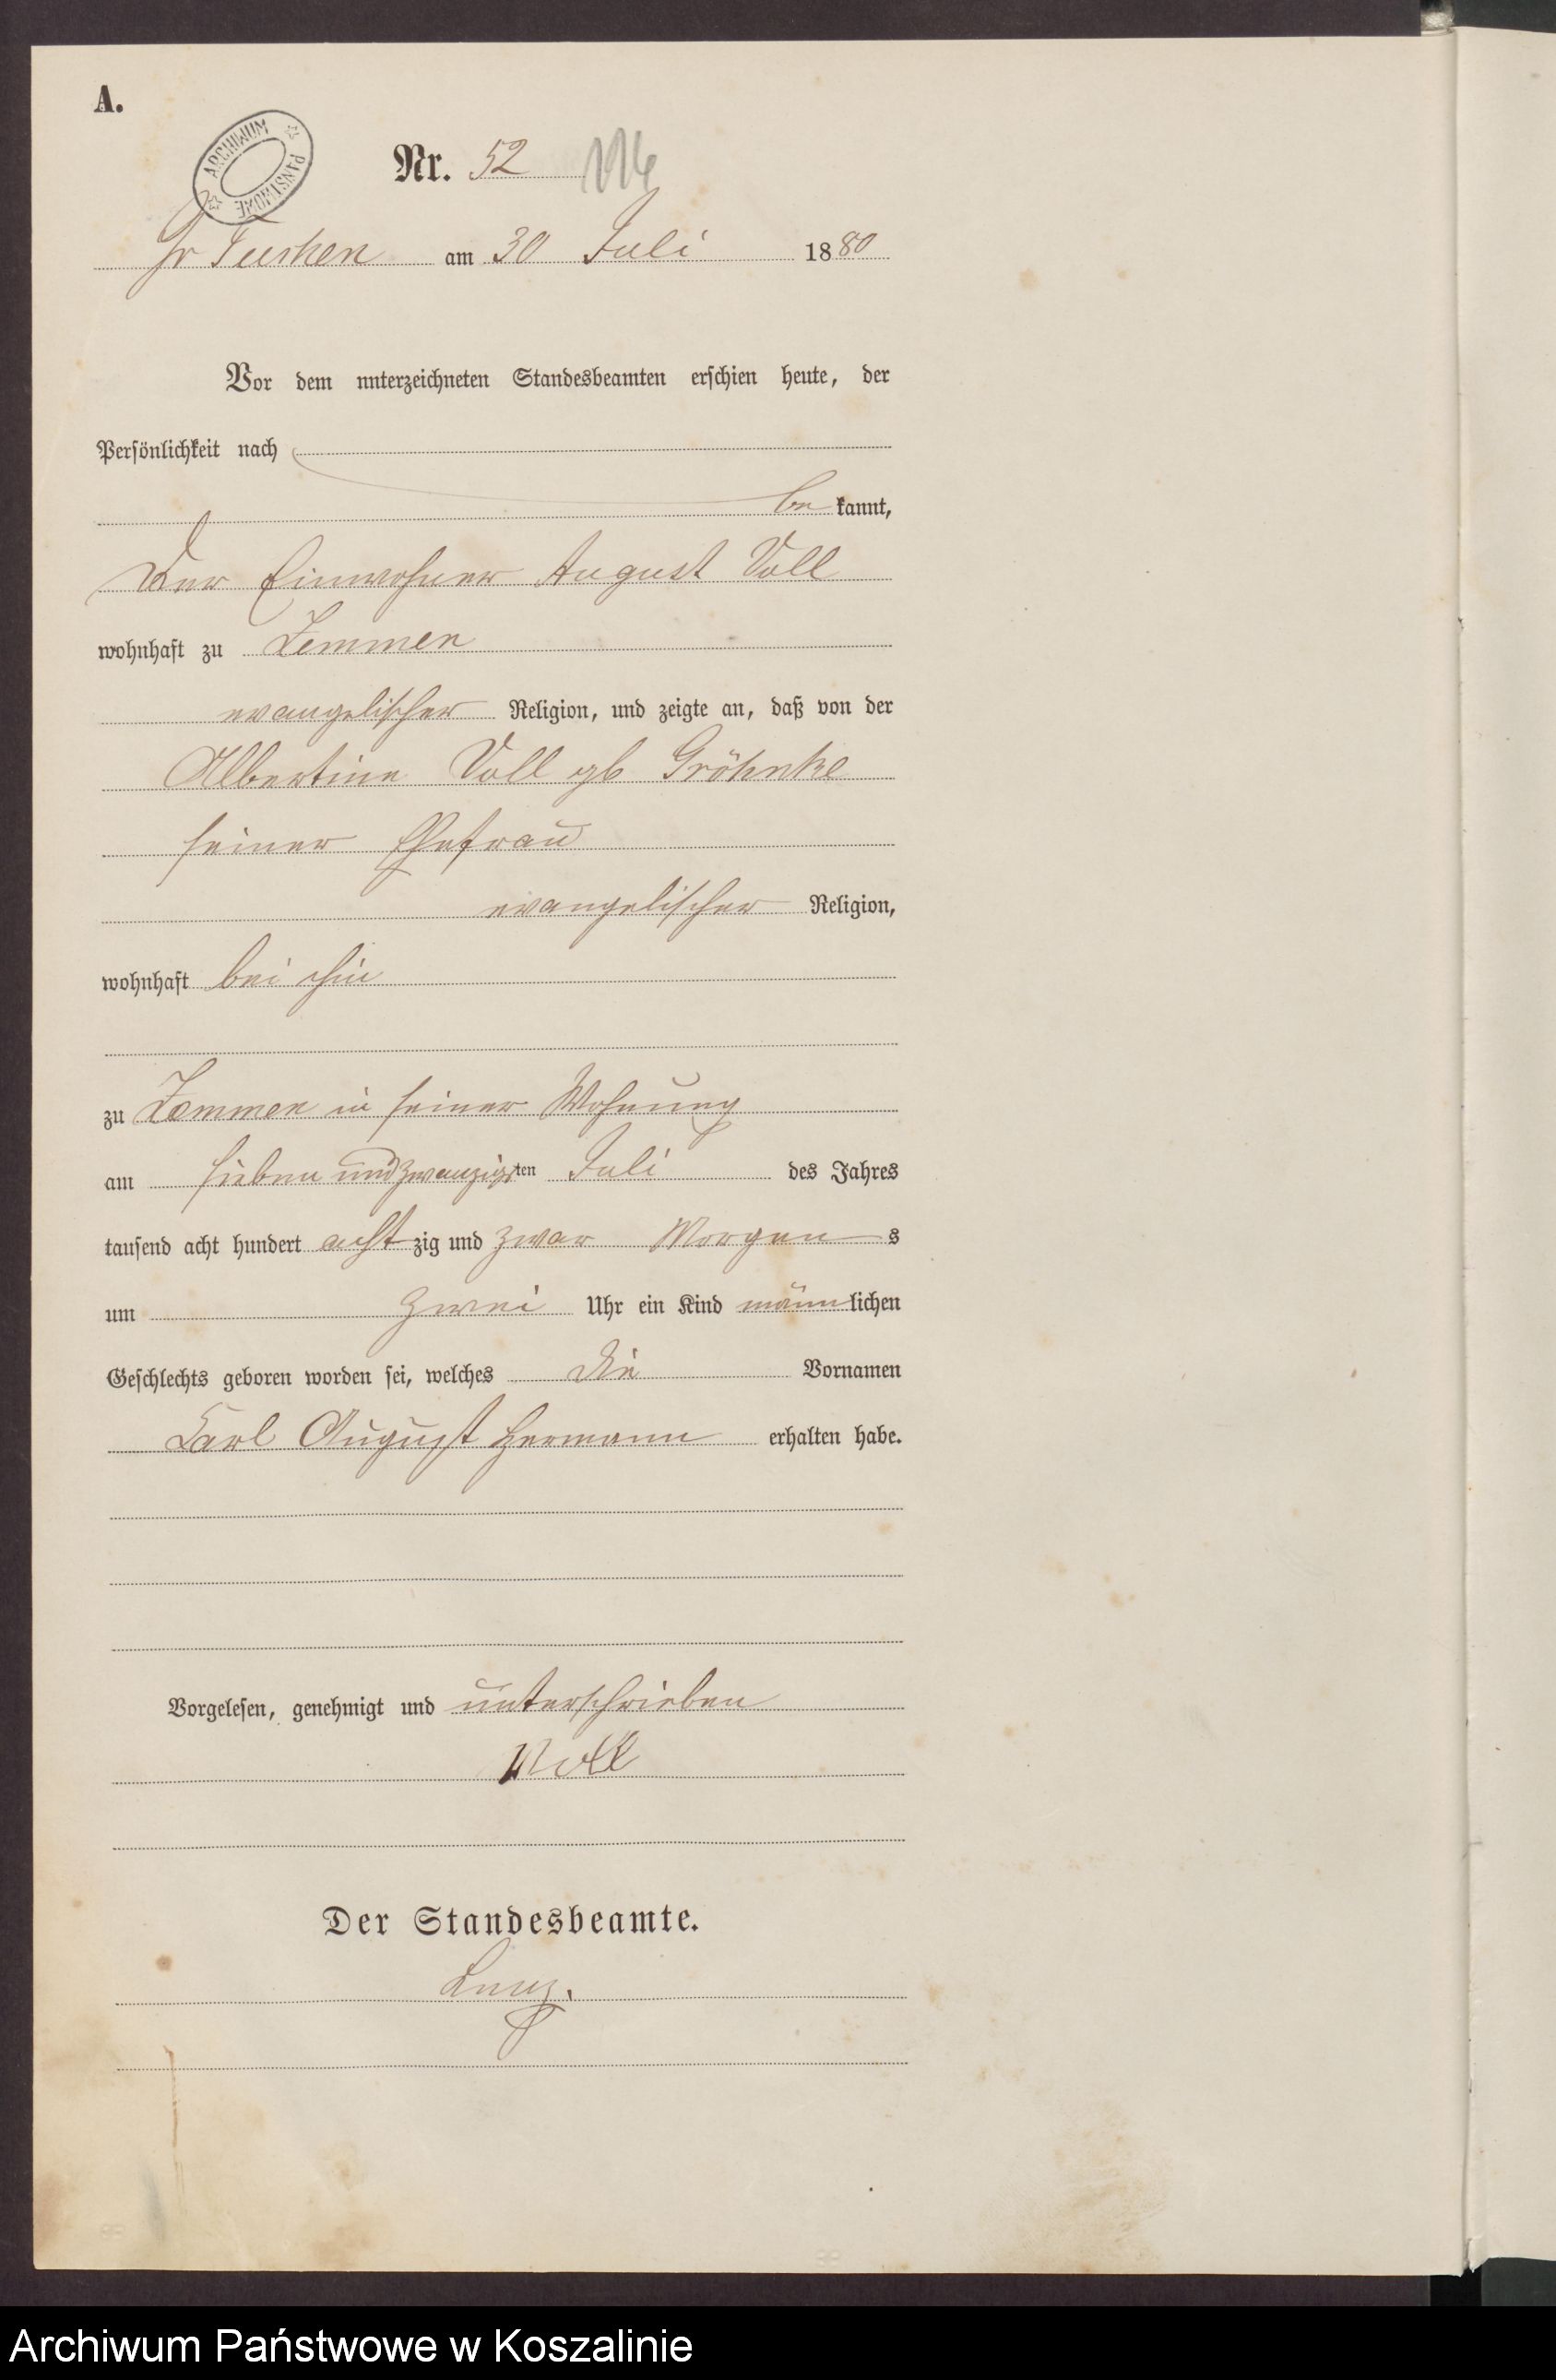 A.
ARCHIWUM PAŃSTWOWE
Nr. 52 116
Gr Tuchen am 30 Juli 1880
Vor dem unterzeichneten Standesbeamten erschien heute, der
Persönlichkeit nach
be kannt,
der Einwohner August Voll
wohnhaft zu Zemmen
evangelischer Religion, und zeigte an, daß von der
Albertine Voll gb Gröhnke
seiner Ehefrau
evangelischer Religion,
wohnhaft bei ihm
zu Zemmen in seiner Wohnung
am sieben und zwanzigsten Juli des Jahres
tausend acht hundert acht zig und zwar Morgens
um zwei Uhr ein Kind männlichen
Geschlechts geboren worden sei, welches die Vornamen
Carl August Hermann erhalten habe.
Vorgelesen, genehmigt und unterschrieben
Voll
Der Standesbeamte.
Archiwum Państwowe w Koszalinie